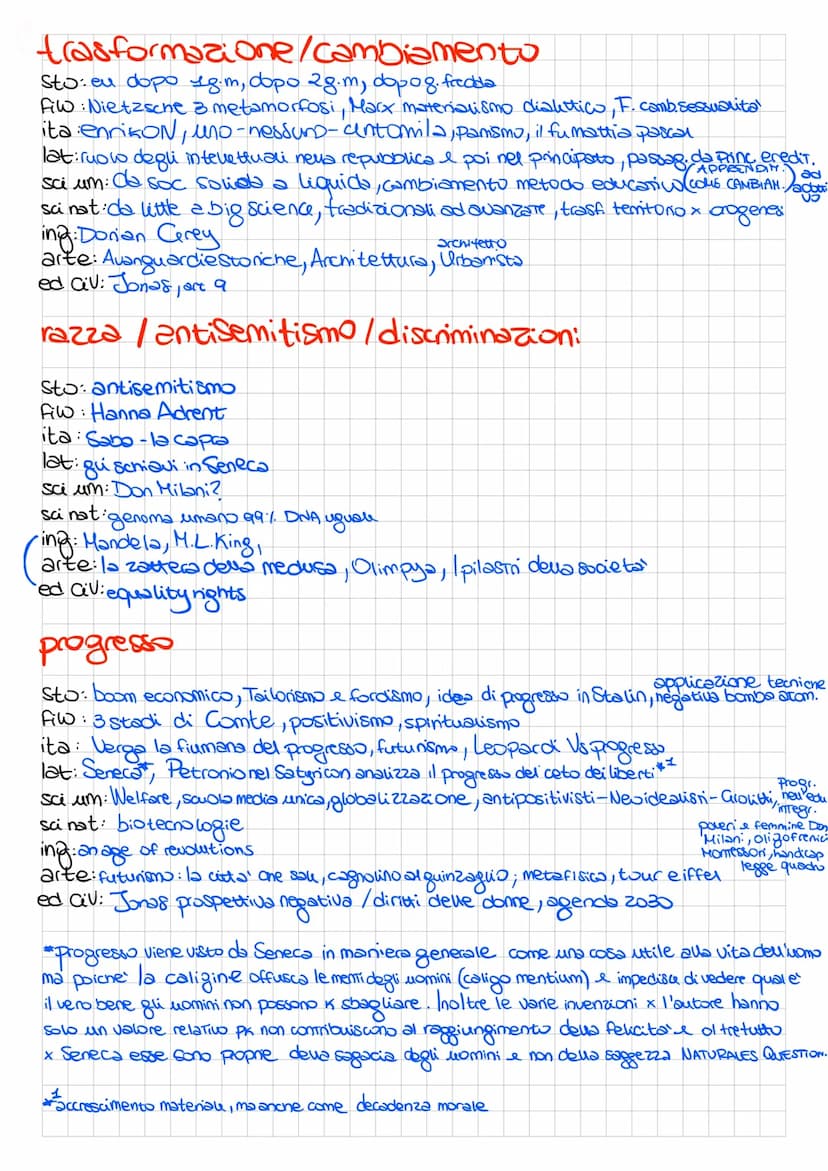 trasformazione/cambiamento
sto: eu dopo 1g.m, dopo 2g.m, dopo g fredda
filo: Nietzsche 3 metamorfosi, Marx materialismo dialettico, F. camb sessualità
ita: enrikON, uno-nessuno-centomila, panismo, il fu mattia pascal
lat: ruolo degli intellettuali nella repubblica e poi nel principato, passag. da Princ. eredit. ad adottivo
sci um: da soc solida a liquida, cambiamento metodo educativo (APPRENDIM. COME CAMBIAM.)
sci nat: da little a big science, tradizionali ad avanzate, trasf territorio x orogenesi
ing: Dorian Grey
arte: Avanguardie storiche, Architettura, architetto Urbanista
ed civ: Jonas, art 9
razza /antisemitismo/discriminazioni
sto: antisemitismo
filo: Hanna Adrent
ita: Saba - la capra
lat: gli schiavi in Seneca
sci um: Don Milani?
sci nat: genoma umano 99% DNA uguale
ing: Mandela, M.L.King,
arte: la zattera della medusa, Olimpya, I pilastri della società
ed civ: equality rights
progresso
sto: boom economico, Tailorismo e fordismo, idea di progresso in Stalin, applicazione tecniche negativa bomba atom.
filo: 3 stadi di Comte, positivismo, spiritualismo
ita: Verga la fiumana del progresso, futurismo, Leopardi Vs progresso
lat: Seneca*, Petronio nel Satyricon analizza il progresso del ceto dei liberti*1
sci um: Welfare, scuola media unica, globalizzazione, antipositivisti-Neoidealisti-Giolitti, progr. nell'edu
integr.
poveri e femmine Don
Milani, oligofrenici
Montessori, handicap
legge quadro
sci nat: biotecnologie
ing: an age of revolutions
arte: futurismo: la città che sale, cagnolino al guinzaglio; metafisica, tour eiffel
ed civ: Jonas prospettiva negativa /diritti delle donne, agenda 2030
*Progresso viene visto da Seneca in maniera generale come una cosa utile alla vita dell'uomo
ma poiché la caligine offusca le menti degli uomini (caligo mentium) e impedisce di vedere qual è
il vero bene gli uomini non possono k sbagliare. Inoltre le varie invenzioni x l'autore hanno
solo un valore relativo pk non contribuiscono al raggiungimento della felicità e oltretutto
x Seneca esse sono proprie della sagacia degli uomini e non della saggezza NATURALES QUESTION.
*1 accrescimento materiale, ma anche come decadenza morale